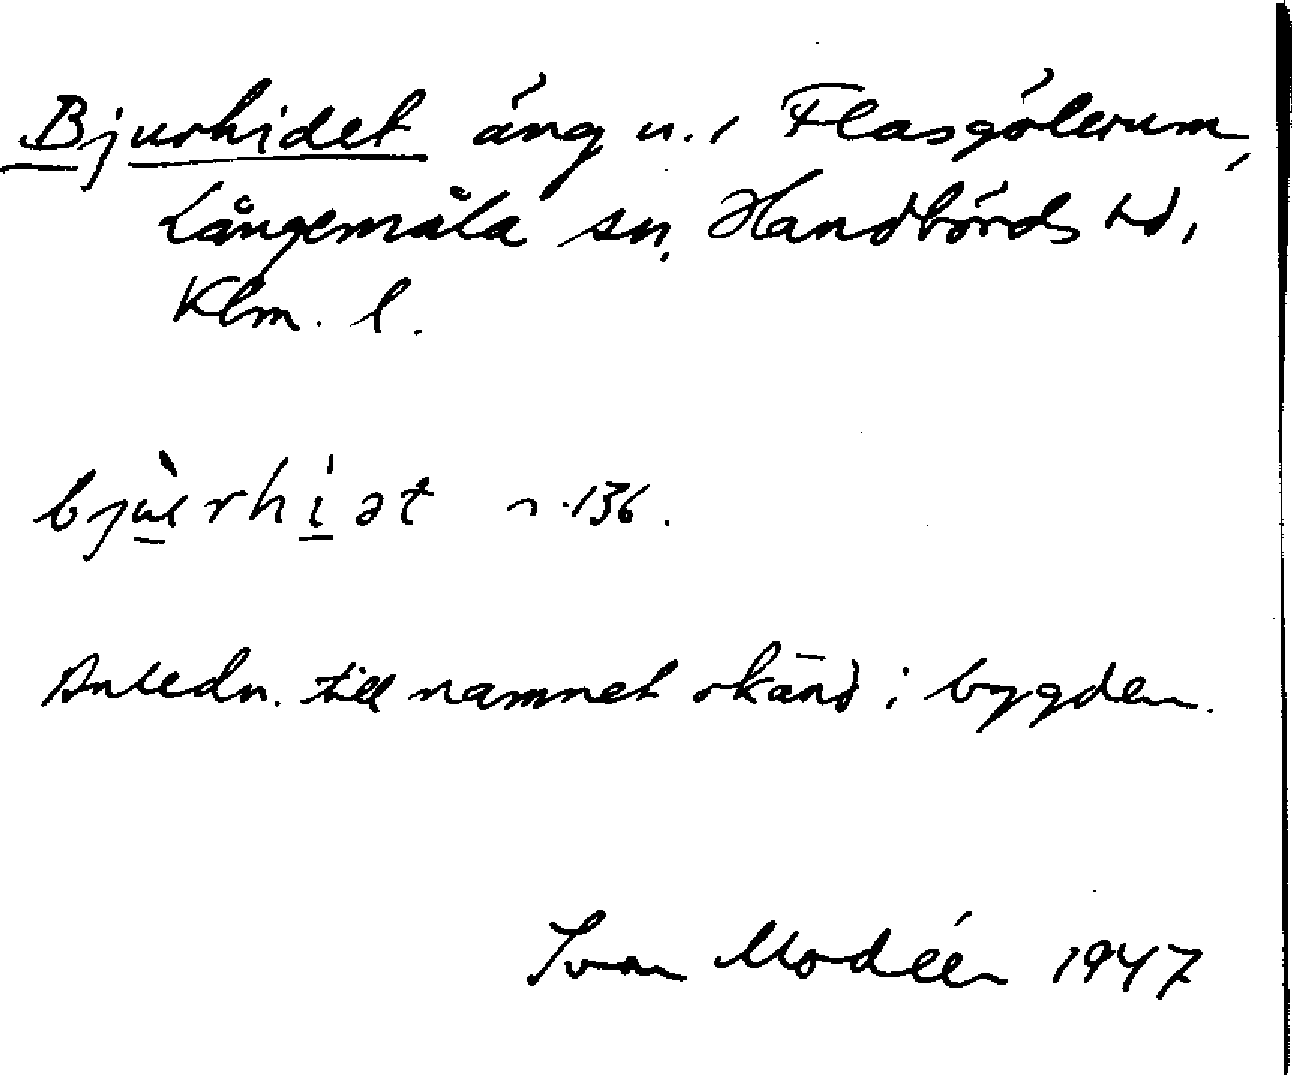 Bjurhidet äng u. i Flasgölerum,
Långemåla sn, Handbörds hd,
Klm. l.
bjù̲rhí̲ət n. 136.
Anledn. till namnet okänd i bygden.
Ivan Modéer 1947